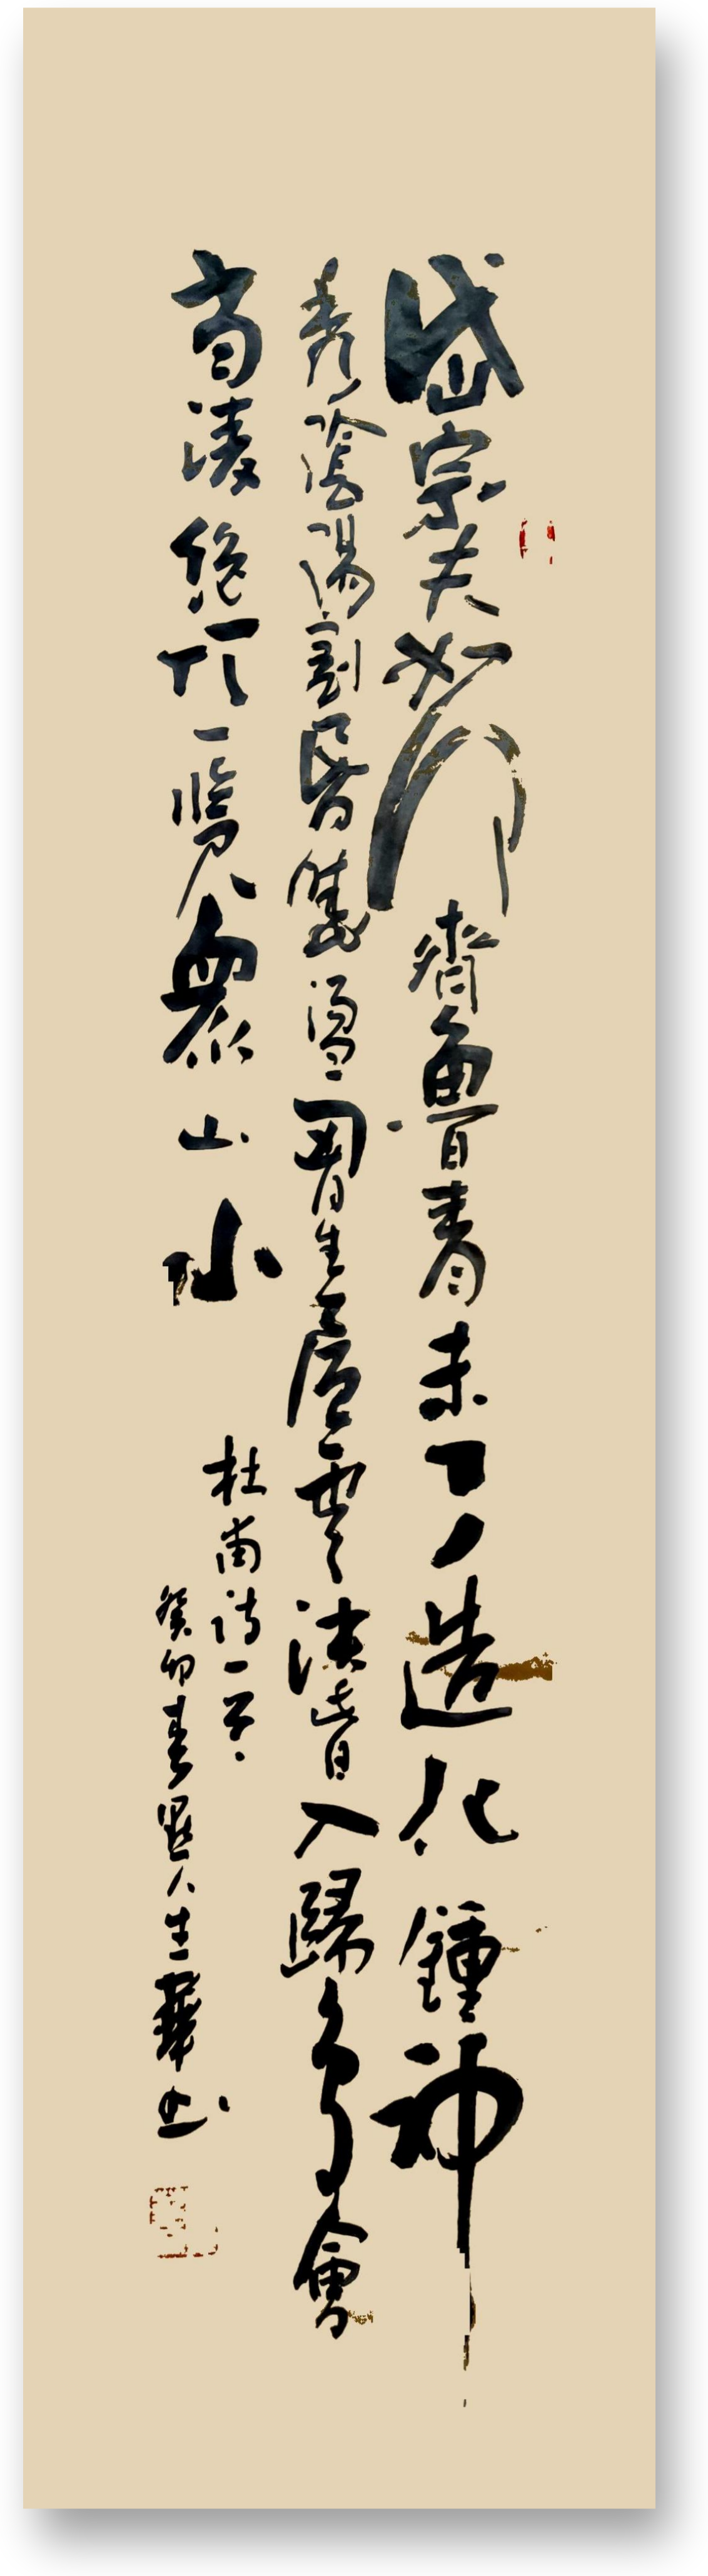 岱宗夫如何齊魯青未了造化鍾神
秀陰陽割昏曉盪胷生層雲決眥入歸鳥會
當淩絕頂一覽衆山小
杜甫詩一首
癸卯春墨人生華書